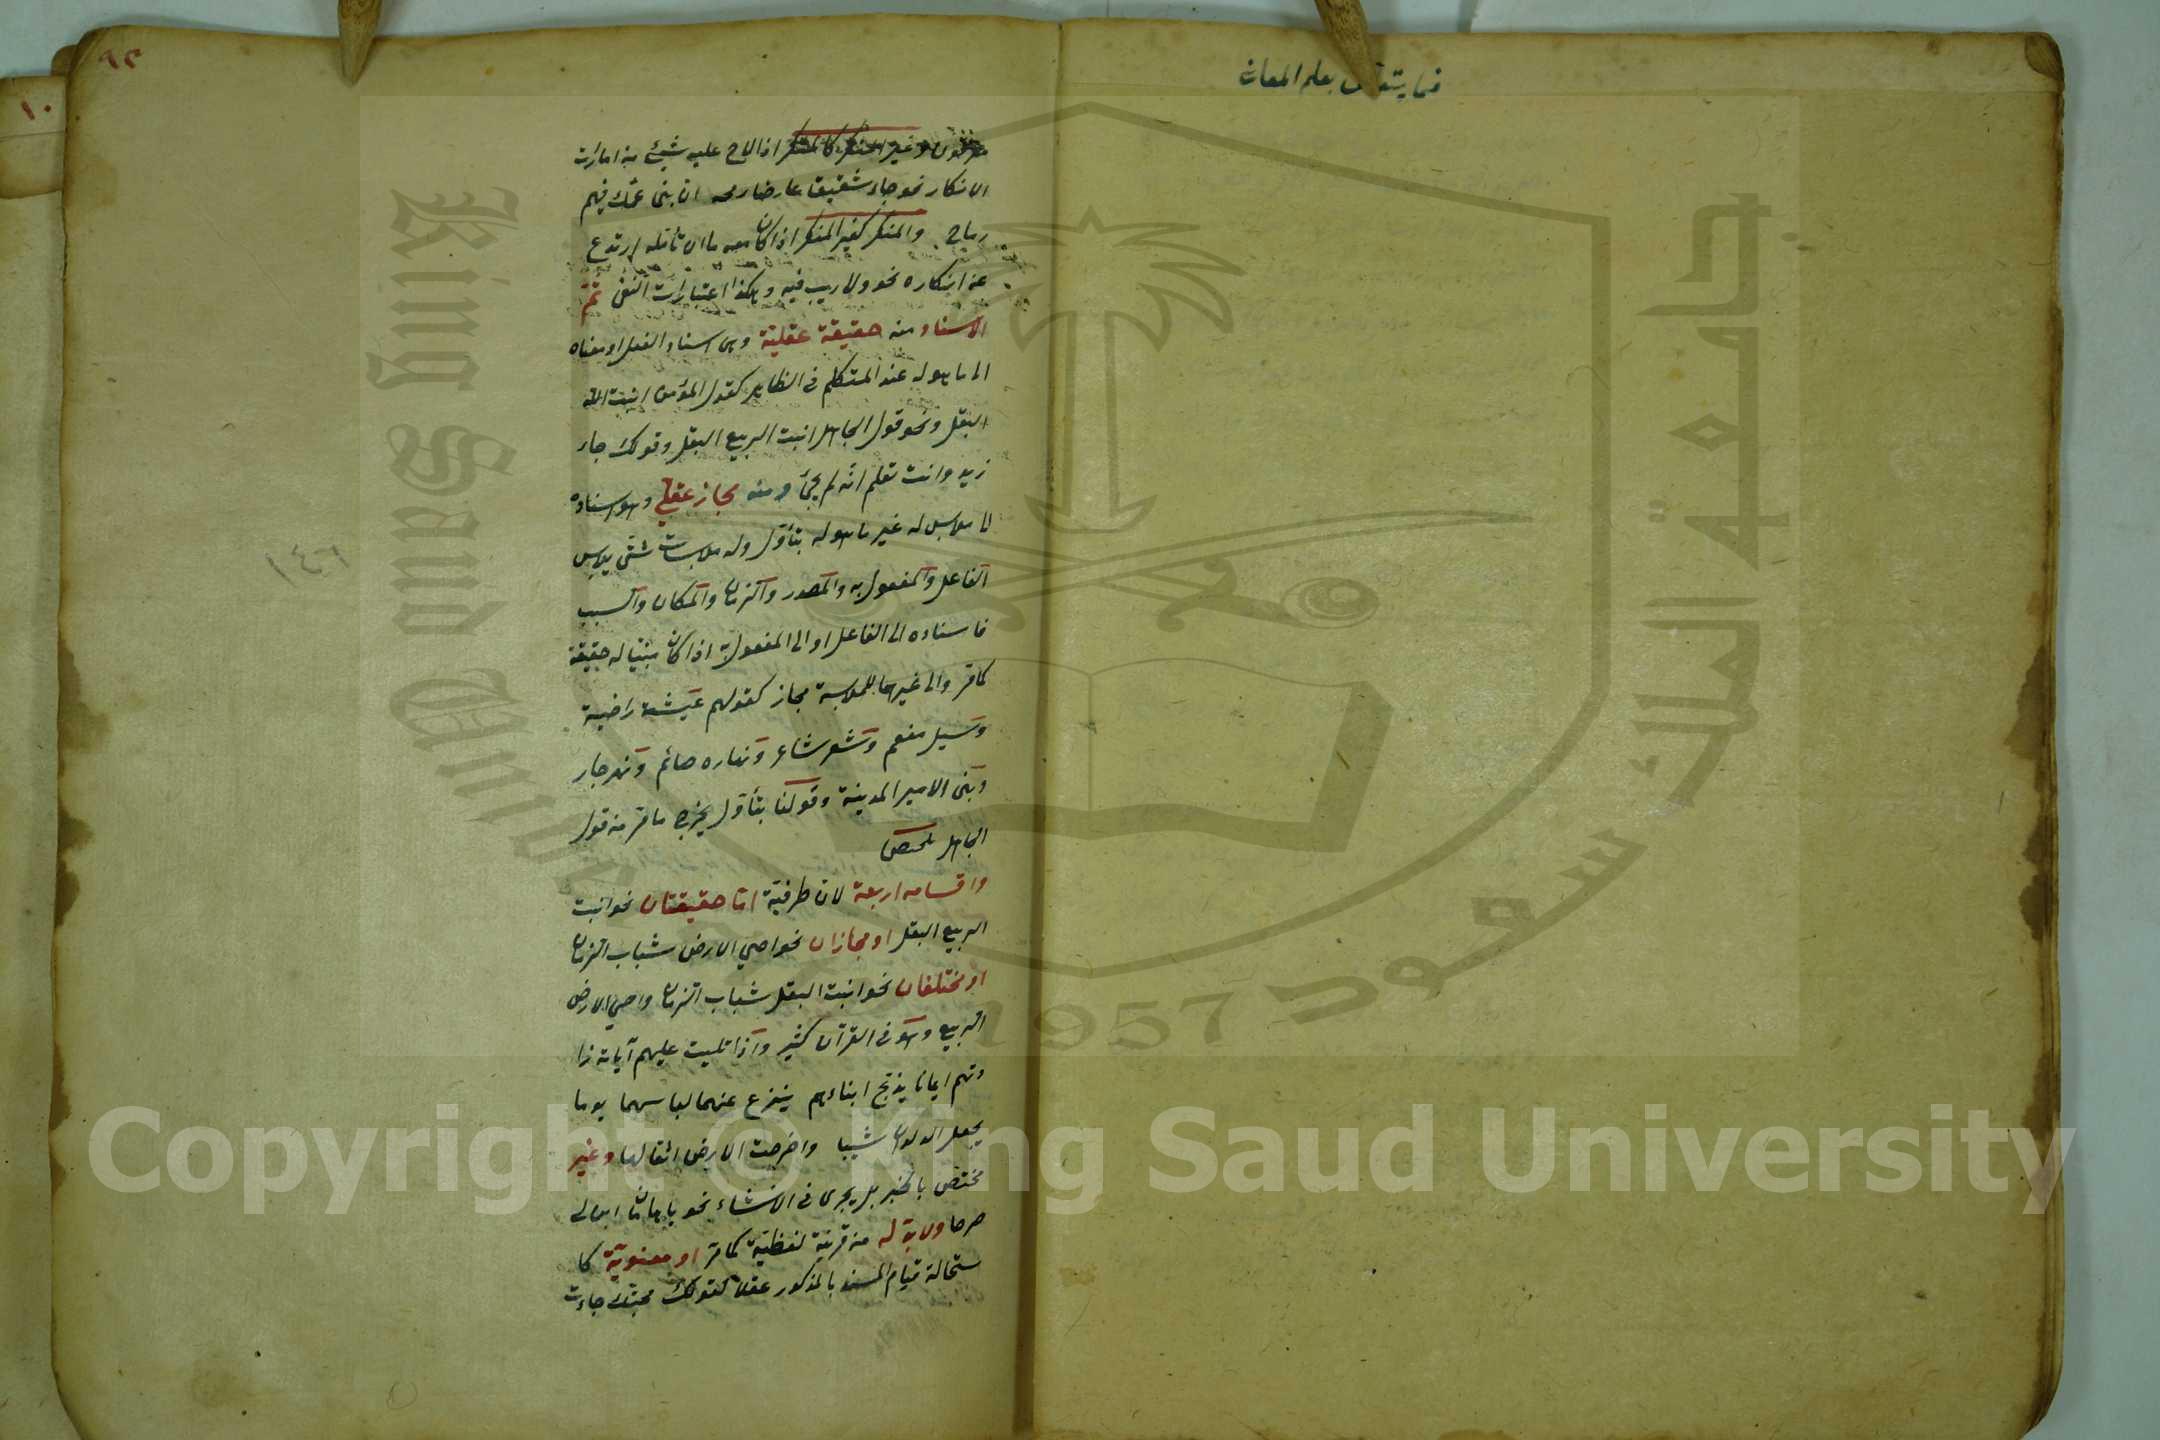 فيما يتعلق بعلم المعاني
٩٣
١٠
مغرقون وغير المنكر كالمنكر اذا لاح عليه شيئ من امارات
الانكار نحو جاء شقيق عارضا رمحه ان بنى عمك فيهم
رماح والمنكر كغير المنكر اذا كان معه ما ان تأمله ارتدع
عن انكاره نحو ولا ريب فيه وهكذا اعتبارات النفى ثم
الاسناد منه حقيقة عقلية وهى اسناد الفعل او معناه
الى ما هو له عند المتكلم فى الظاهر كقول المؤمن انبت الله
البقل ونحو قول الجاهل انبت الربيع البقل وقولك جاء
زيد وانت تعلم انه لم يجئ ومنه مجاز عقلى وهو اسناده
الى ملابس له غير ما هو له بتأول وله ملابسات شتى يلابس
الفاعل والمفعول به والمصدر والزمان والمكان والسبب
فاسناده الى الفاعل او الى المفعول به اذا كان مبنيا له حقيقة
كما مر والى غيرهما للملابسة مجاز كقولهم عيشة راضية
وسيل مفعم وشعر شاعر ونهاره صائم ونهر جار
وبنى الامير المدينة وقولنا بتأول يخرج ما مر من قول
الجاهل تلخيص
واقسامه اربعة لان طرفيه اما حقيقتان نحو انبت
الربيع البقل او مجازان نحو احيى الارض شباب الزمان
او مختلفان نحو انبت البقل شباب الزمان واحيى الارض
الربيع وهو فى القرآن كثير واذا تليت عليهم آياته زا
دتهم ايمانا يذبح ابناءهم ينزع عنهما لباسهما يوما
يجعل الولدان شيبا واخرجت الارض اثقالها وغير
مختص بالخبر بل يجرى فى الانشاء نحو يا هامان ابن لى
صرحا ولا بد له من قرينة لفظية كما مر او معنوية كا
ستحالة قيام المسند بالمذكور عقلا كقولك محبتك جاءت
١٤٦
King Saud University
جامعة الملك سعود
1957
Copyright © King Saud University